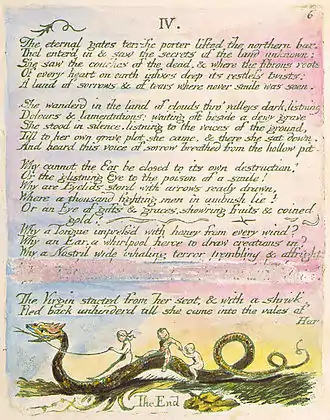 6
IV.
The eternal gates terrific porter lifted the northern bar:
Thel enter'd in & saw the secrets of the land unknown;
She saw the couches of the dead, & where the fibrous roots
Of every heart on earth infixes deep its restless twists:
A land of sorrows & of tears where never smile was seen.
She wanderd in the land of clouds thro' valleys dark, listning
Dolours & lamentations: waiting oft beside a dewy grave
She stood in silence, listning to the voices of the ground,
Till to her own grave plot she came, & there she sat down,
And heard this voice of sorrow breathed from the hollow pit.
Why cannot the Ear be closed to its own destruction?
Or the glistning Eye to the poison of a smile!
Why are Eyelids stord with arrows ready drawn,
Where a thousand fighting men in ambush lie?
Or an Eye of gifts & graces, show'ring fruits & coined
gold!
Why a Tongue impress'd with honey from every wind?
Why an Ear, a whirlpool fierce to draw creations in?
Why a Nostril wide inhaling terror trembling & affright
The Virgin started from her seat, & with a shriek,
Fled back unhinderd till she came into the vales of
Har
The End